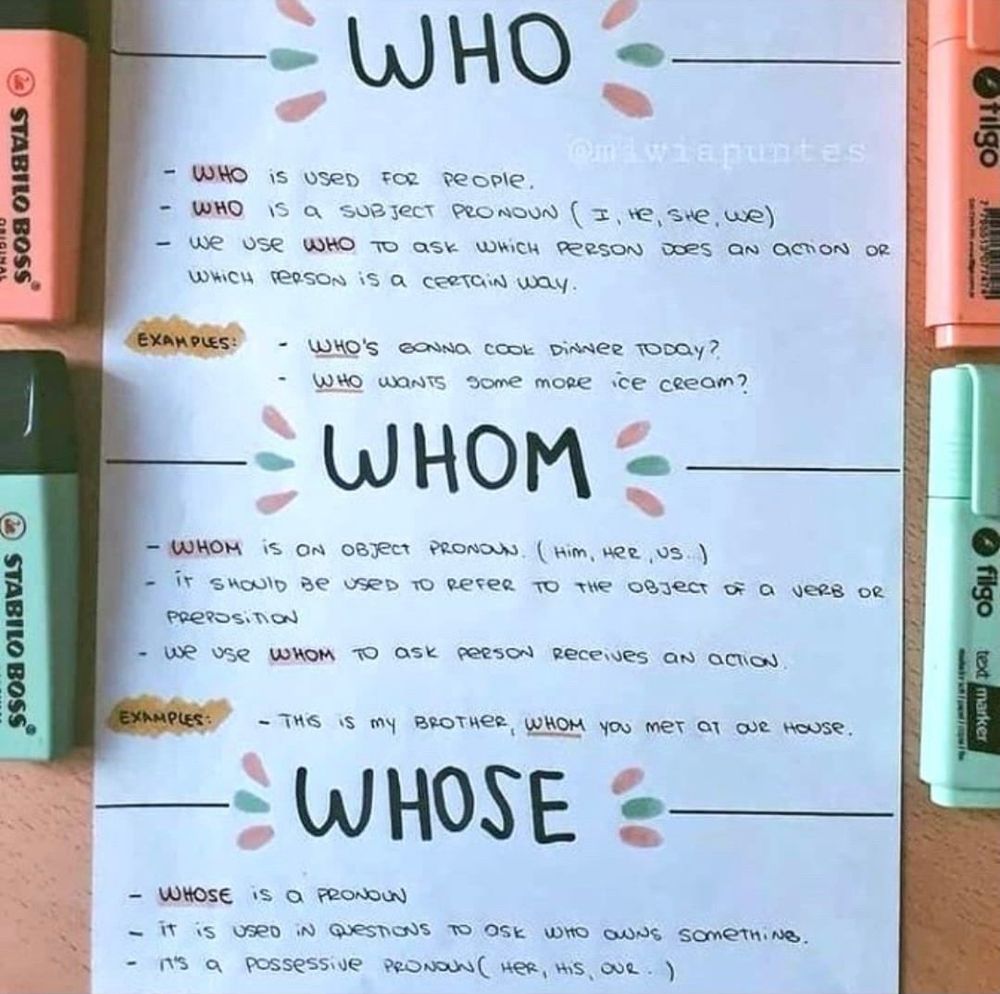 WHO
@miwiapuntes
- WHO is used for people.
- WHO is a subject pronoun (I, He, She, we)
- we use WHO to ask which person does an action or
which person is a certain way.
EXAMPLES: - WHO'S gonna cook dinner today?
- WHO wants some more ice cream?
WHOM
- WHOM is an object pronoun. (Him, Her, us..)
- it should be used to refer to the object of a verb or
preposition
- we use WHOM to ask person receives an action.
EXAMPLES: - This is my brother, WHOM you met at our house.
WHOSE
- WHOSE is a pronoun
- it is used in questions to ask who owns something.
- it's a possessive pronoun (Her, His, our..)
STABILO BOSS®
ORIGINAL
STABILO BOSS®
filgo
filgo
text marker